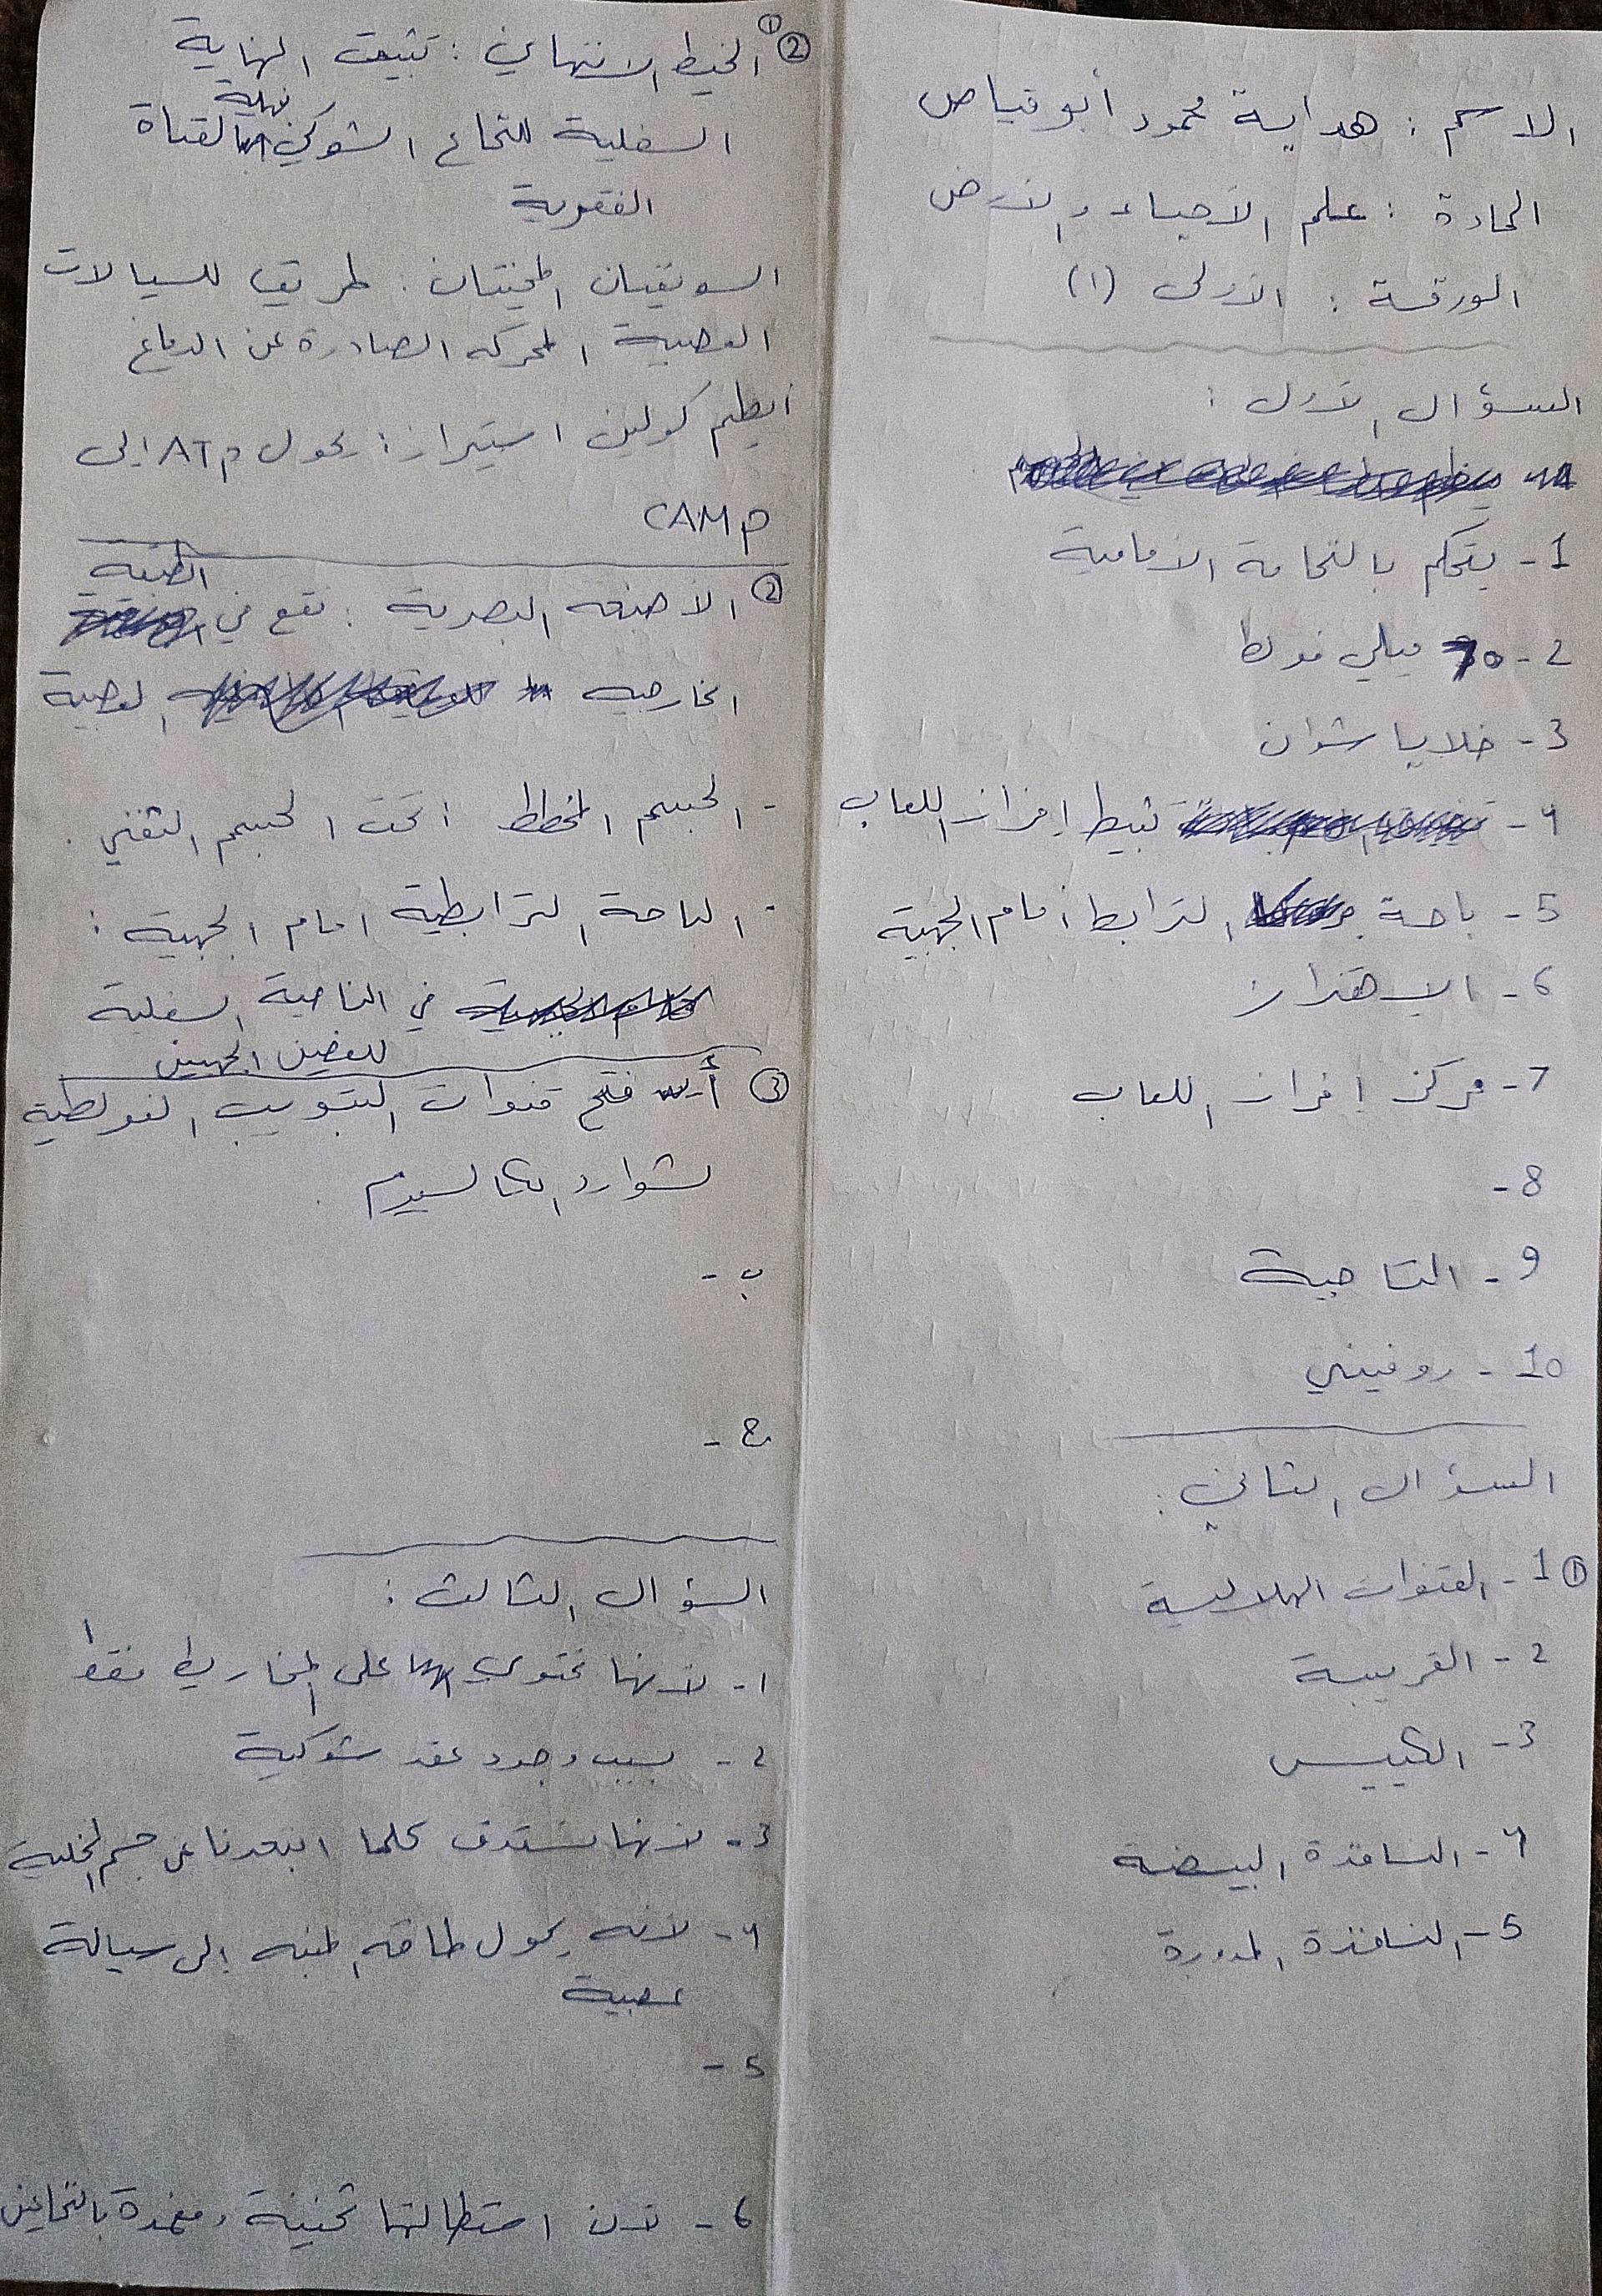 الاسم : هداية محمود أبو قياص
المادة : علم الأحياء والأرض
الورقة : الأولى (١)
السؤال الأول :
1- يتحكم بالنخامة الأمامية
2- 70 ميلي فولط
3- خلايا شوان
4- تثبيط إفراز اللعاب
5- باحة الترابط أمام الجبهية
6- الاهتزاز
7- مركز إفراز اللعاب
8-
9- التاجية
10- روفيني
السؤال الثاني :
① 1- القنوات الهلالية
2- القريبة
3- الكييس
4- النافذة البيضية
5- النافذة المدورة
② ① الخيط الانتهائي : تثبيت النهاية
السفلية للنخاع الشوكي بنهاية القناة
الفقرية
السويقتان المخيتان : طريق للسيالات
العصبية المحركة الصادرة عن الدماغ
أنظيم كولين استيراز : يحول ATP إلى
CAMP
② الأصبغة البصرية : تقع في القطعة
الخارجية العصبية
- الجسم المخطط : تحت الجسم الثفني .
- الباحة الترابطية أمام الجبهية :
في الناحية السفلية
للفصين الجبهيين
③ أ- فتح قنوات التبويب الفولطية
لشوارد الكالسيوم .
ب -
ج -
السؤال الثالث :
1- لأنها تحتوي على المخاريط فقط
2- بسبب وجود عقد شوكية
3- لأنها تستدق كلما ابتعدنا عن جسم الخلية
4- لأنه يحول طاقة المنبه إلى سيالة
عصبية
5-
6- لأن استطالتها ثخينة ومغمدة بالنخاعين